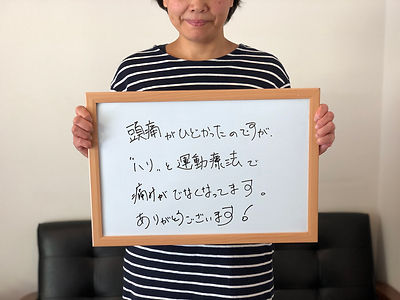 頭痛がひどかったのですが、
"ハリ"と運動療法で
痛みがでなくなってます。
ありがとうございます!